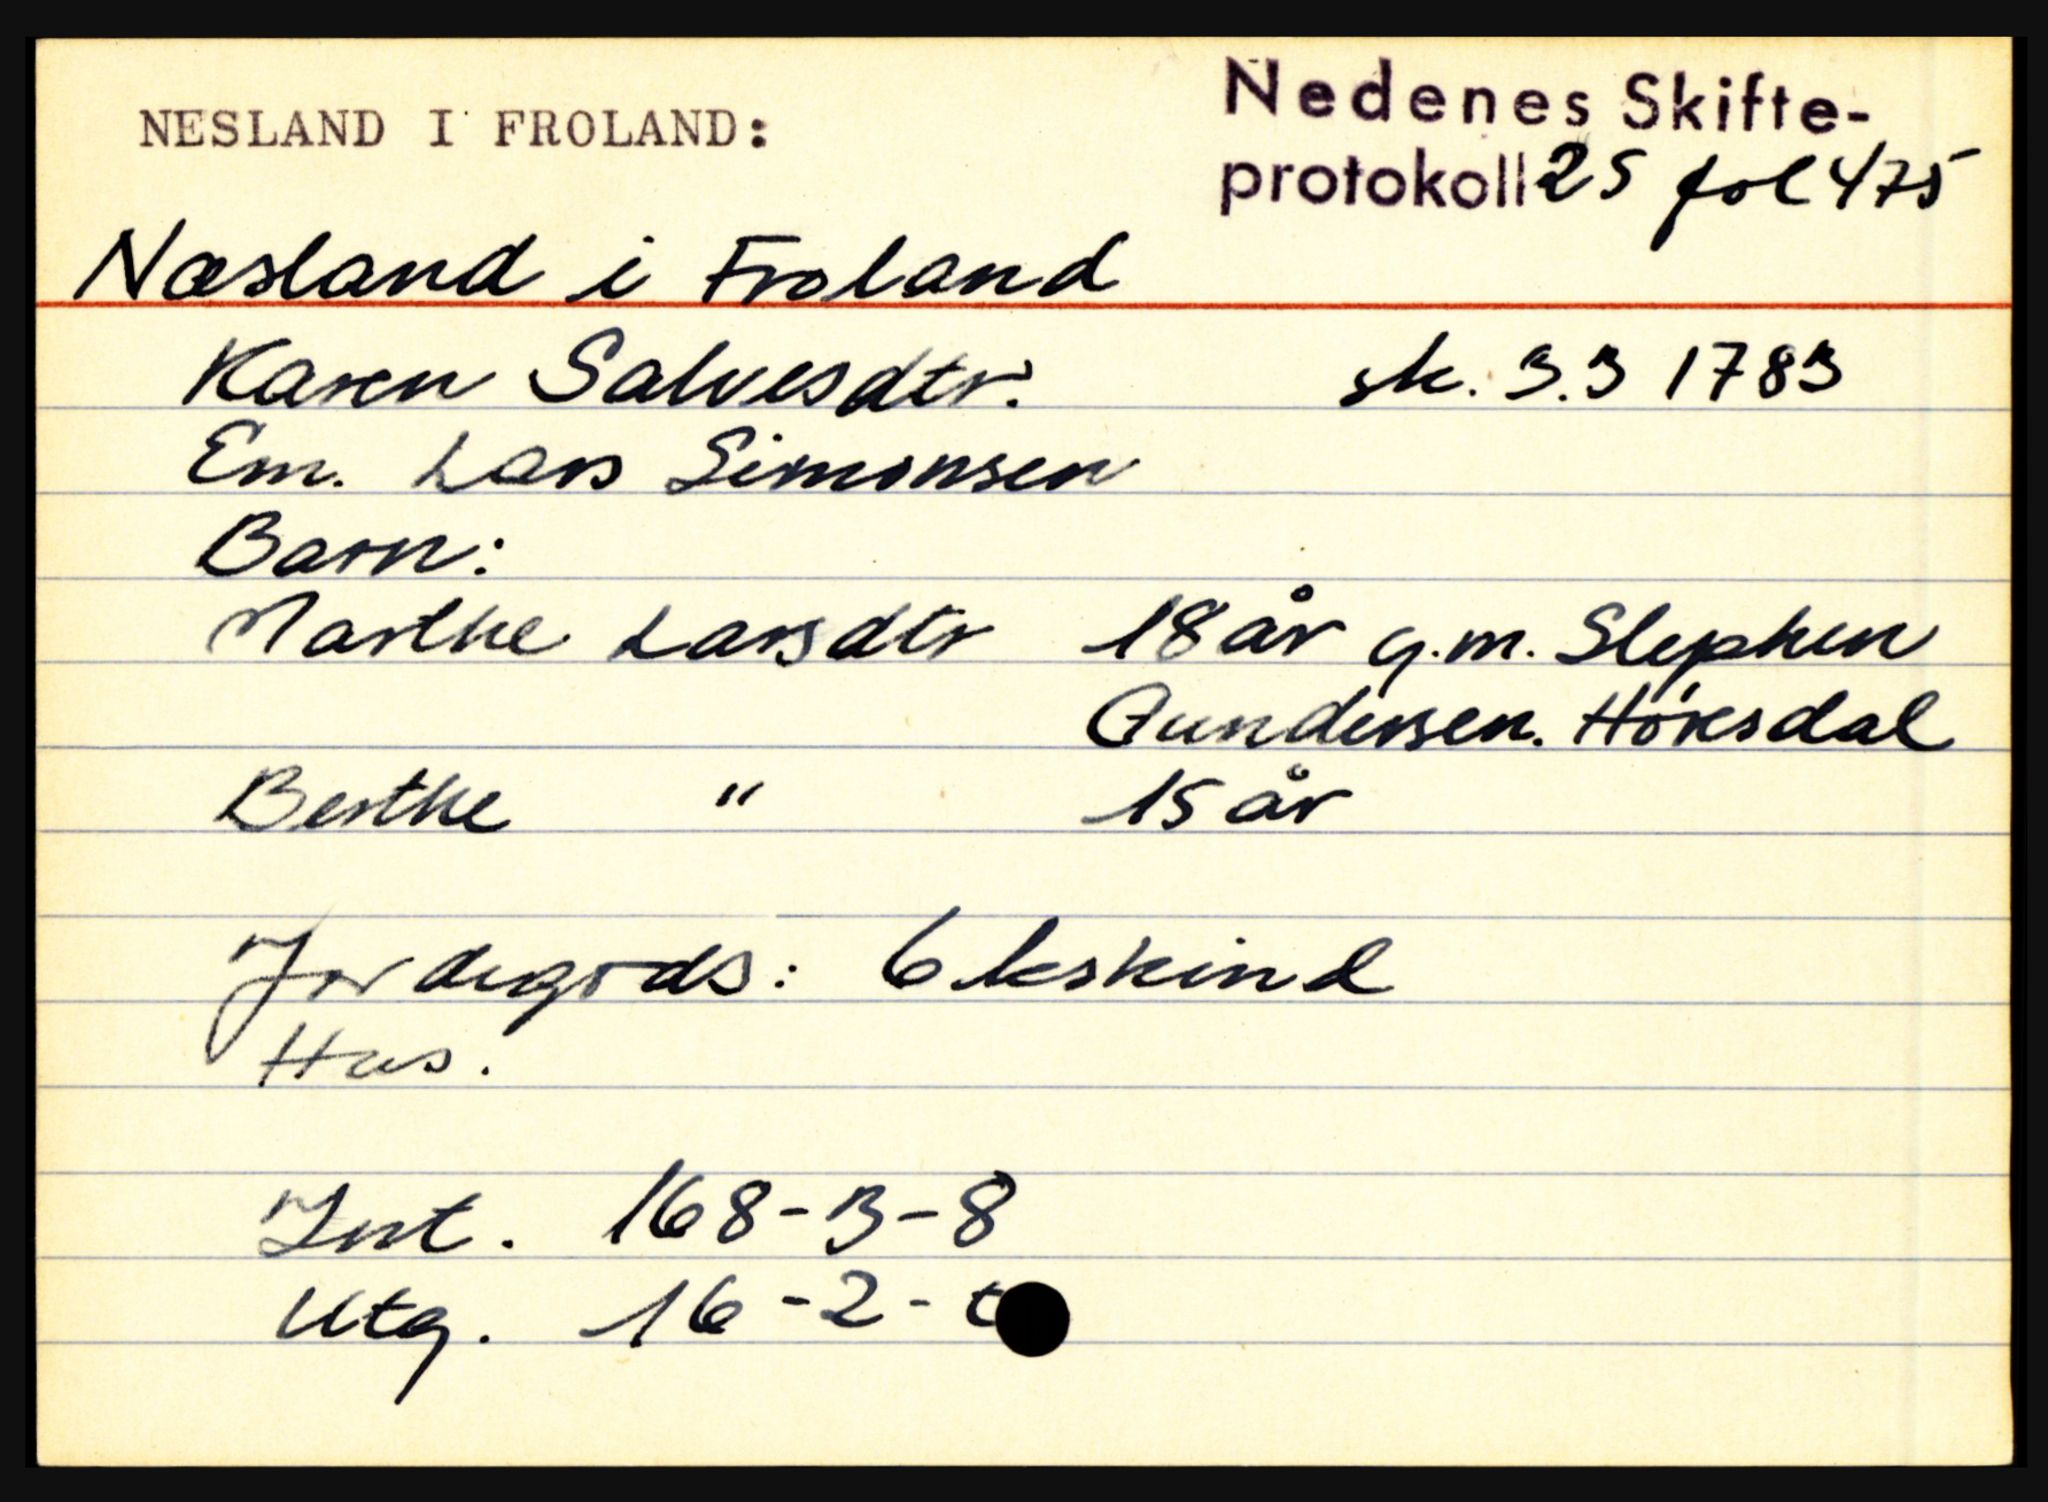 NESLAND I FROLAND:
Nedenes Skifte-
protokoll 25 fol 475
Næsland i Froland
Karen Salvesdtr. sk. 3.3 1783
Em. Lars Simonsen
Barn:
Marthe Larsdtr 18 år g.m. Stephen
Gundersen. Höresdal
Berthe " 15 år
Jordegods: 6 kskind
Hus.
Int. 168-3-8
Utg. 16-2-